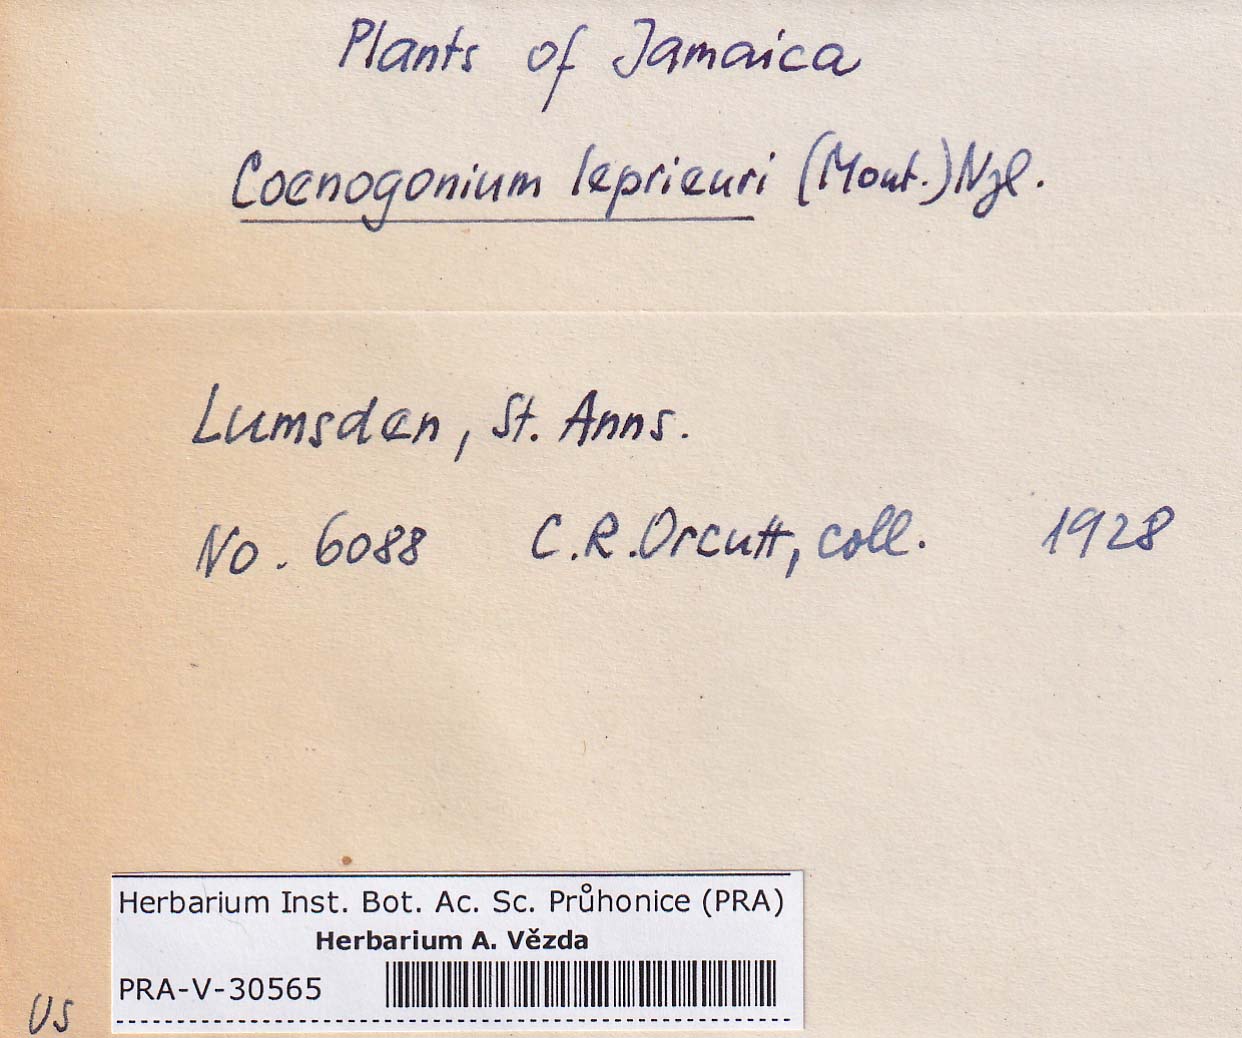 Plants of Jamaica
Coenogonium leprieuri (Mont.) Nyl.
Lumsden, St. Anns.
No. 6088 C.R. Orcutt, coll. 1928
Herbarium Inst. Bot. Ac. Sc. Průhonice (PRA)
Herbarium A. Vězda
PRA-V-30565
US